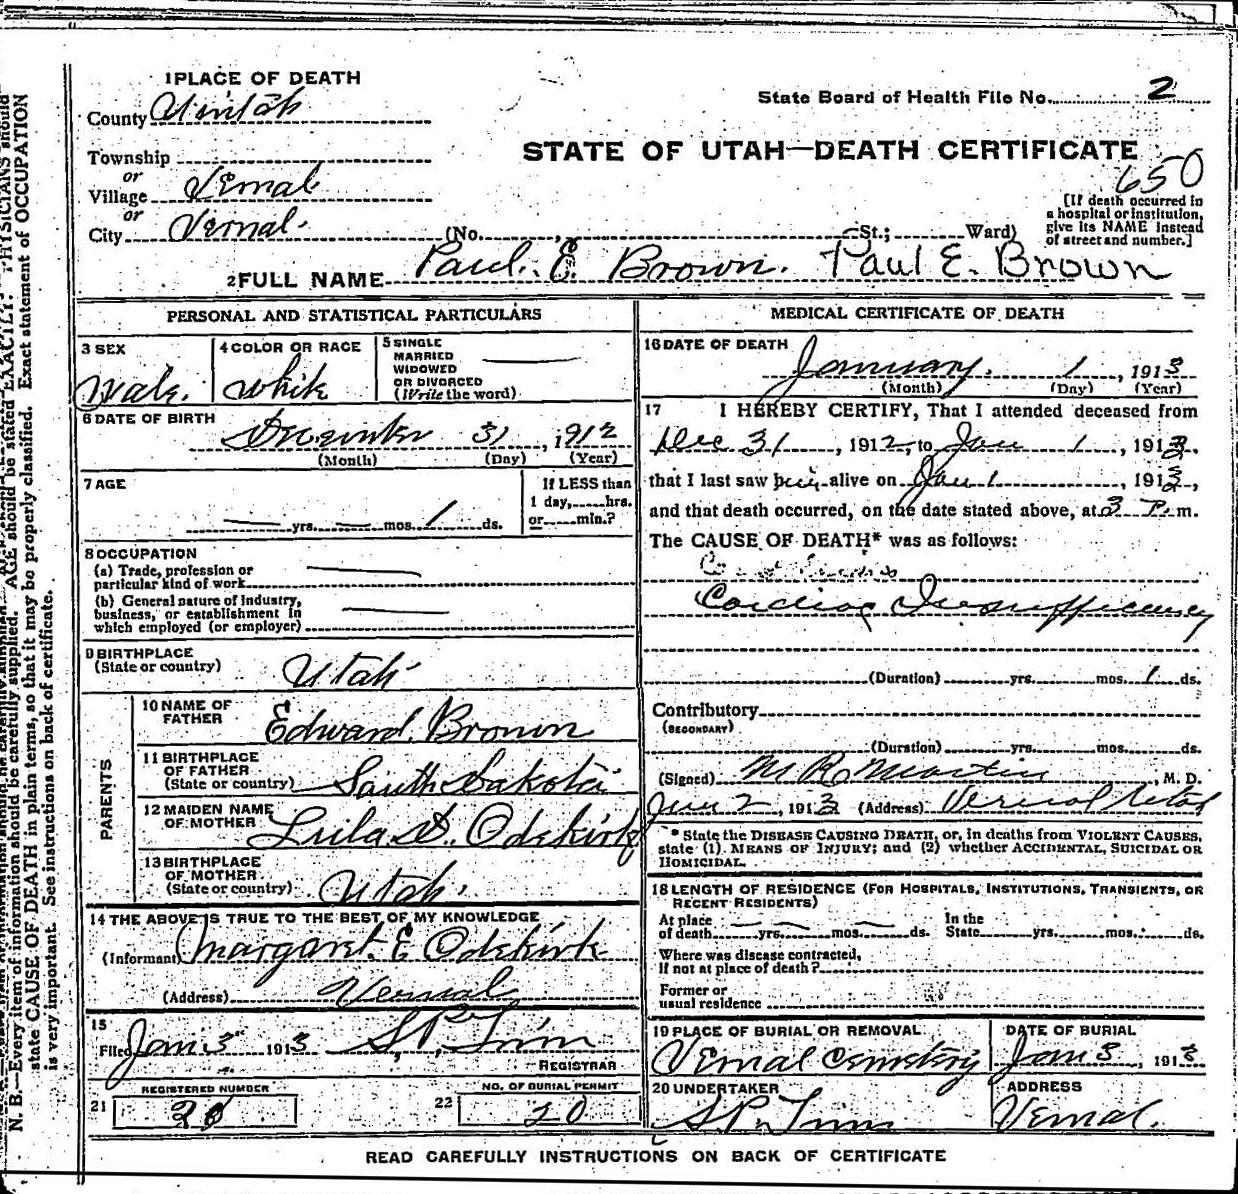 1 PLACE OF DEATH
County Uintah
State Board of Health File No. 2
STATE OF UTAH—DEATH CERTIFICATE
650
Township
or
Village Vernal
or
City Vernal. (No. , St.; Ward)
[If death occurred in a hospital or institution, give its NAME instead of street and number.]
2 FULL NAME Paul. E. Brown. Paul E. Brown
PERSONAL AND STATISTICAL PARTICULARS
3 SEX
Male.
4 COLOR OR RACE
White
5 SINGLE
MARRIED
WIDOWED
OR DIVORCED
(Write the word)
6 DATE OF BIRTH
December 31, 1912
(Month) (Day) (Year)
7 AGE
yrs. mos. 1 ds.
If LESS than
1 day, hrs.
or min.?
8 OCCUPATION
(a) Trade, profession or
particular kind of work
(b) General nature of industry,
business, or establishment in
which employed (or employer)
9 BIRTHPLACE
(State or country)
Utah
PARENTS
10 NAME OF
FATHER
Edward Brown
11 BIRTHPLACE
OF FATHER
(State or country) South Dakota
12 MAIDEN NAME
OF MOTHER
Lula D. Odekirk
13 BIRTHPLACE
OF MOTHER
(State or country) Utah.
14 THE ABOVE IS TRUE TO THE BEST OF MY KNOWLEDGE
(Informant) Margaret E Odekirk
(Address) Vernal
15
Filed Jan 3 1913
REGISTRAR
REGISTERED NUMBER
21
NO. OF BURIAL PERMIT
22 20
MEDICAL CERTIFICATE OF DEATH
16 DATE OF DEATH
January. 1, 1913
(Month) (Day) (Year)
17 I HEREBY CERTIFY, That I attended deceased from
Dec 31, 1912, to Jan 1, 1913,
that I last saw him alive on Jan 1, 1913,
and that death occurred, on the date stated above, at 3 P. m.
The CAUSE OF DEATH* was as follows:
Cardiac Insufficiency
(Duration) yrs. mos. 1 ds.
Contributory
(SECONDARY)
(Duration) yrs. mos. ds.
(Signed) M R. Martin, M. D.
Jan 2, 1913 (Address) Vernal Utah
* State the DISEASE CAUSING DEATH, or, in deaths from VIOLENT CAUSES,
state (1) MEANS OF INJURY; and (2) whether ACCIDENTAL, SUICIDAL OR
HOMICIDAL.
18 LENGTH OF RESIDENCE (FOR HOSPITALS, INSTITUTIONS, TRANSIENTS, OR
RECENT RESIDENTS)
At place In the
of death yrs. mos. ds. State yrs. mos. ds.
Where was disease contracted,
if not at place of death?
Former or
usual residence
19 PLACE OF BURIAL OR REMOVAL
Vernal Cemetery
DATE OF BURIAL
Jan 3, 1913
20 UNDERTAKER
ADDRESS
Vernal.
READ CAREFULLY INSTRUCTIONS ON BACK OF CERTIFICATE
N. B.—Every item of information should be carefully supplied. AGE should be stated EXACTLY. PHYSICIANS should
state CAUSE OF DEATH in plain terms, so that it may be properly classified. Exact statement of OCCUPATION
is very important. See instructions on back of certificate.